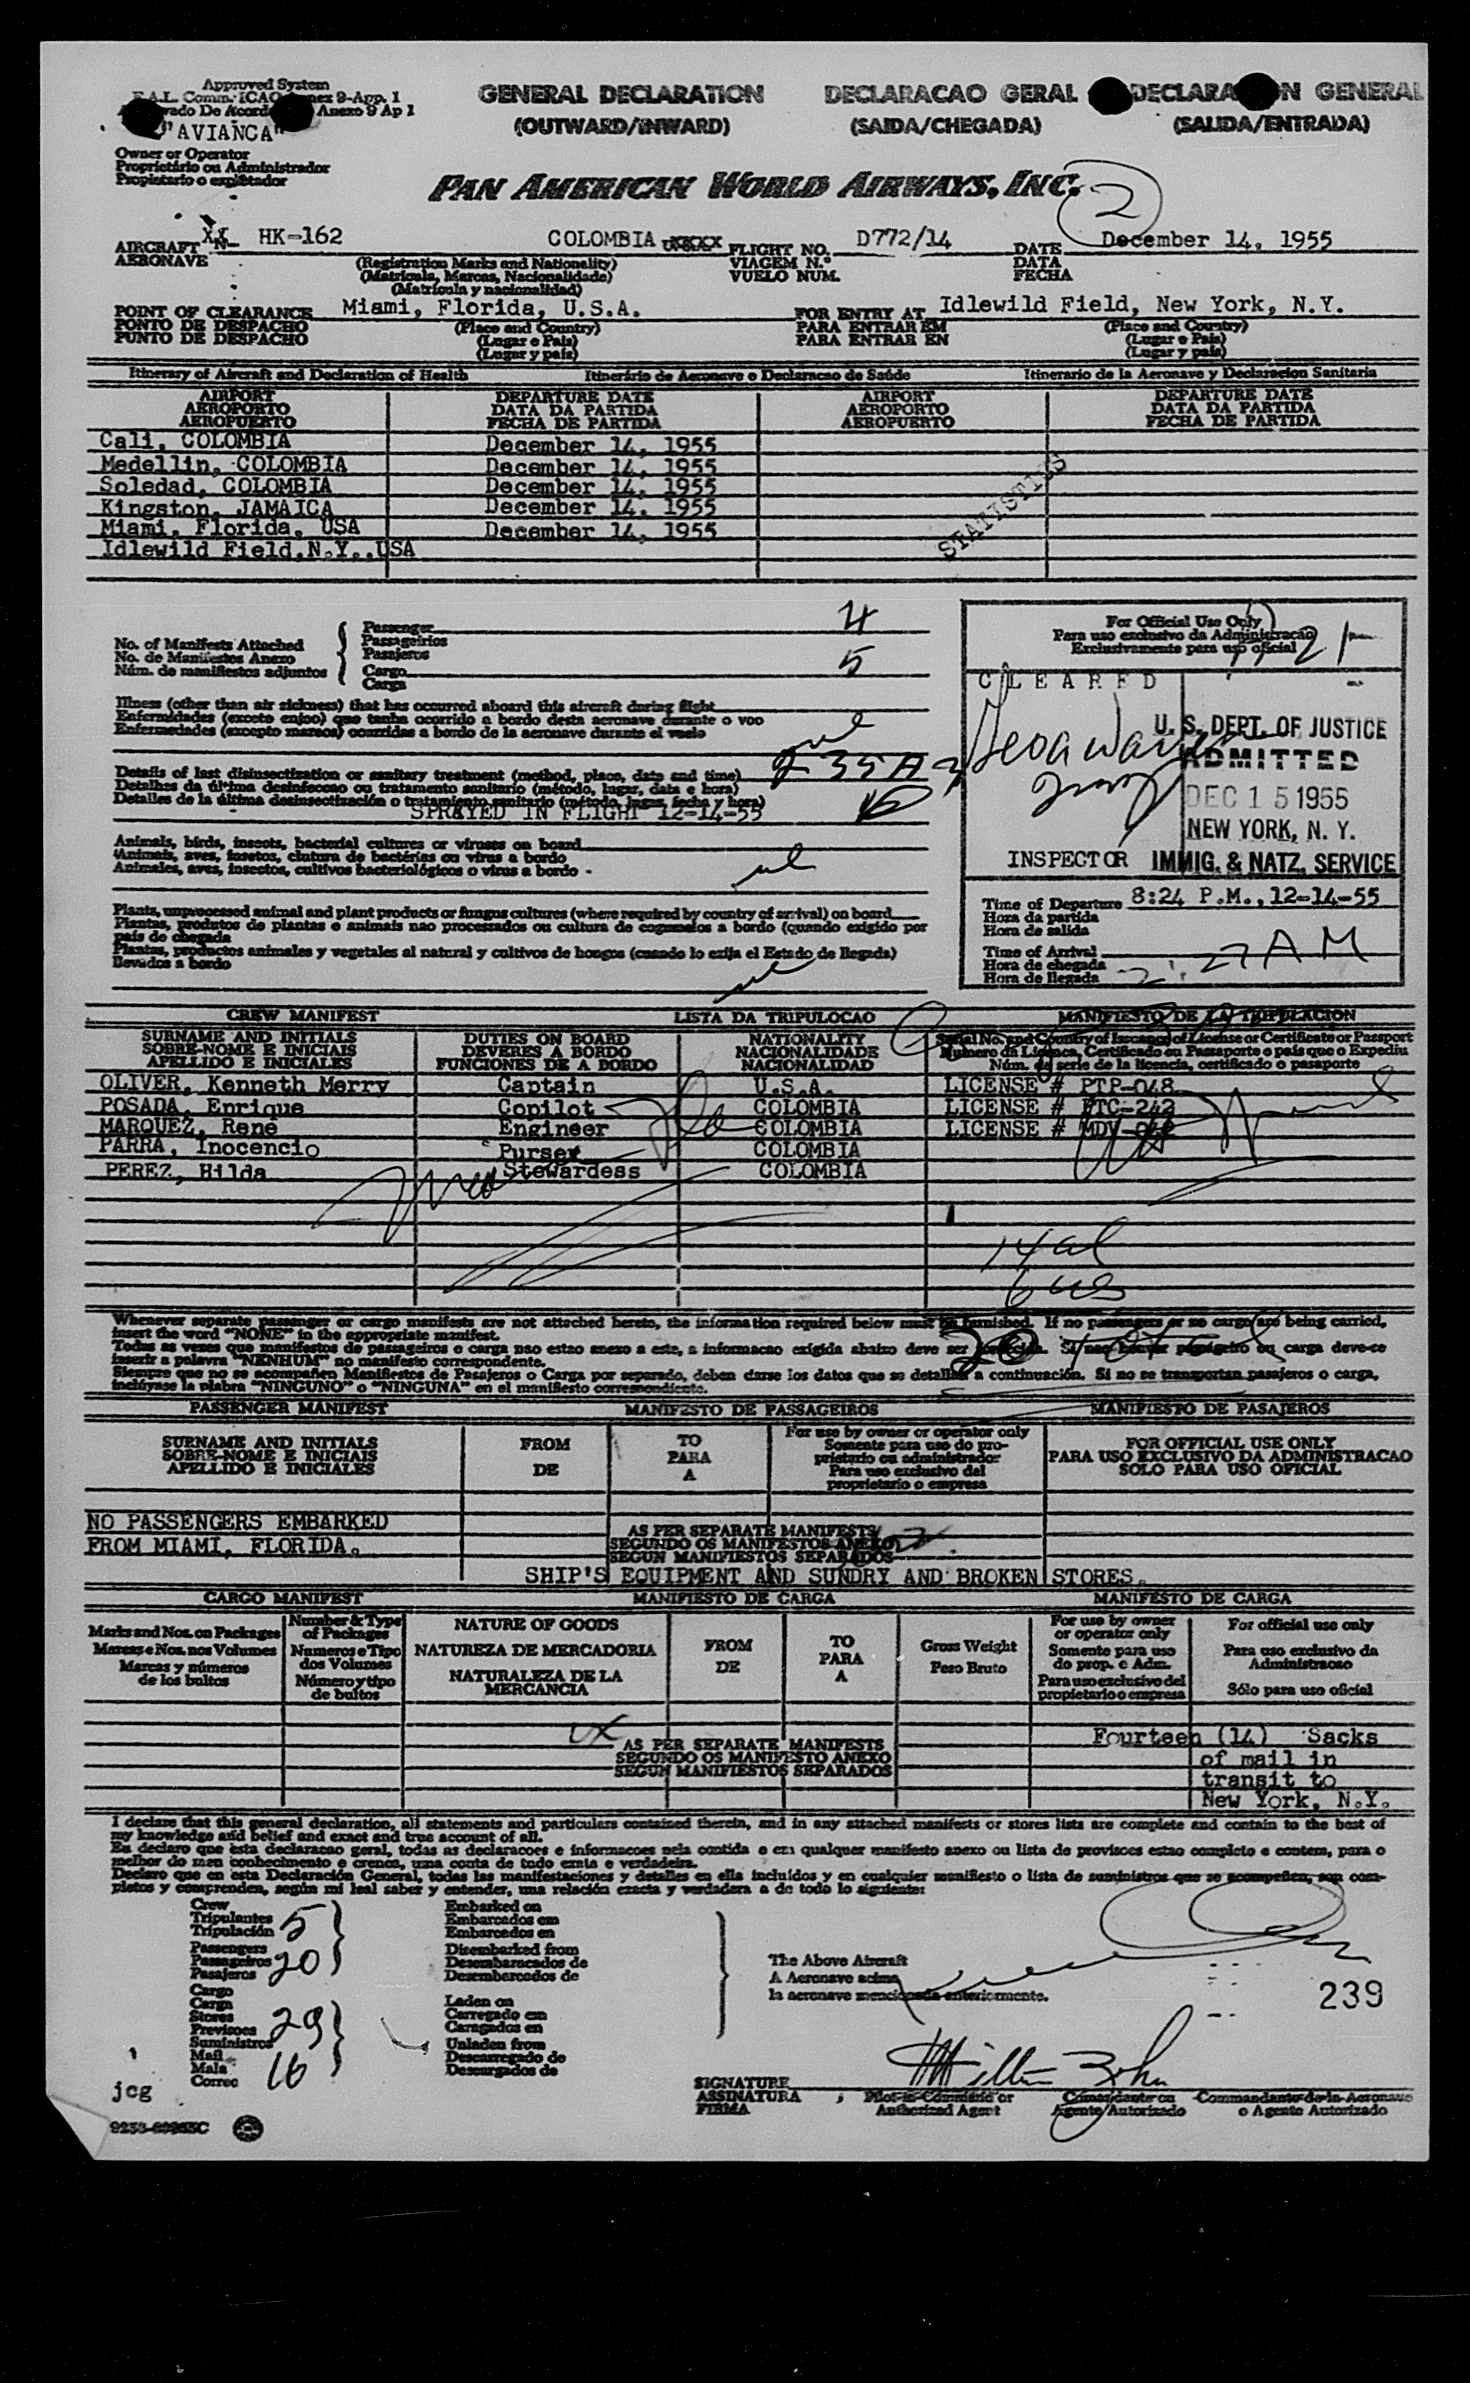 Approved System
F.A.L. Comm. ICAO Annex 9-App. 1
Anexo 9 Ap 1
"AVIANCA"
Owner or Operator
Proprietário ou Administrador
Propietario o explotador
GENERAL DECLARATION
(OUTWARD/INWARD)
DECLARACAO GERAL
(SAIDA/CHEGADA)
DECLARACION GENERAL
(SALIDA/ENTRADA)
PAN AMERICAN WORLD AIRWAYS, INC.
2
AIRCRAFT XX HK-162 COLOMBIA FLIGHT NO. D772/14 DATE December 14, 1955
AERONAVE (Registration Marks and Nationality) VIAGEM N.º DATA
(Matricula, Marcas, Nacionalidade) VUELO NUM. FECHA
(Matrícula y nacionalidad)
POINT OF CLEARANCE Miami, Florida, U.S.A. FOR ENTRY AT Idlewild Field, New York, N.Y.
PONTO DE DESPACHO (Place and Country) PARA ENTRAR EM (Place and Country)
PUNTO DE DESPACHO (Lugar e Pais) PARA ENTRAR EN (Lugar e Pais)
(Lugar y país) (Lugar y país)
Itinerary of Aircraft and Declaration of Health Itinerário de Aeronave e Declaracao de Saúde Itinerario de la Aeronave y Declaracion Sanitaria
AIRPORT DEPARTURE DATE AIRPORT DEPARTURE DATE
AEROPORTO DATA DA PARTIDA AEROPORTO DATA DA PARTIDA
AEROPUERTO FECHA DE PARTIDA AEROPUERTO FECHA DE PARTIDA
Cali, COLOMBIA December 14, 1955
Medellin, COLOMBIA December 14, 1955
Soledad, COLOMBIA December 14, 1955
Kingston, JAMAICA December 14, 1955
Miami, Florida, USA December 14, 1955
Idlewild Field,N.Y.,USA
STATISTICS
No. of Manifests Attached
No. de Manifestos Anexo
Núm. de manifiestos adjuntos
Passenger 4
Passageirios
Pasajeros
Cargo 5
Carga
Illness (other than air sickness) that has occurred aboard this aircraft during flight
Enfermidades (exceto enjoo) que tenha ocorrido a bordo desta aeronave durante o voo
Enfermedades (excepto mareos) ocurridas a bordo de la aeronave durante el vuelo
Details of last disinsectization or sanitary treatment (method, place, date and time)
Detalhes da última desinfeccao ou tratamento sanitario (método, lugar, data e hora)
Detalles de la última desinsectización o tratamiento sanitario (método, lugar, fecha y hora)
SPRAYED IN FLIGHT 12-14-55
Animals, birds, insects, bacterial cultures or viruses on board
Animais, aves, insetos, clutura de bactérias ou virus a bordo
Animales, aves, insectos, cultivos bacteriológicos o virus a bordo
Plants, unprocessed animal and plant products or fungus cultures (where required by country of arrival) on board
Plantas, produtos de plantas e animais nao processados ou cultura de cogumelos a bordo (quando exigido por
pais de chegada
Plantas, productos animales y vegetales al natural y cultivos de hongos (cuando lo exija el Estado de llegada)
llevados a bordo
For Official Use Only
Para uso exclusivo da Administracao
Exclusivamente para uso oficial
CLEARED
INSPECTOR
U. S. DEPT. OF JUSTICE
ADMITTED
DEC 15 1955
NEW YORK, N. Y.
IMMIG. & NATZ. SERVICE
Time of Departure 8:24 P.M.,12-14-55
Hora da partida
Hora de salida
Time of Arrival 2:27 AM
Hora de chegada
Hora de llegada
CREW MANIFEST LISTA DA TRIPULOCAO MANIFIESTO DE LA TRIPULACION
SURNAME AND INITIALS DUTIES ON BOARD NATIONALITY Serial No. and Country of Issuance of License or Certificate or Passport
SOBRE-NOME E INICIAIS DEVERES A BORDO NACIONALIDADE Numero da Licenca, Certificado ou Passaporte e pais que o Expediu
APELLIDO E INICIALES FUNCIONES DE A BORDO NACIONALIDAD Núm. de serie de la licencia, certificado o pasaporte
OLIVER, Kenneth Merry Captain U.S.A. LICENSE # PTP-048
POSADA, Enrique Copilot COLOMBIA LICENSE # PTC-242
MARQUEZ, René Engineer COLOMBIA LICENSE # MDV-048
PARRA, Inocencio Purser COLOMBIA
PEREZ, Hilda Stewardess COLOMBIA
14 al
6 us
20 Total
Whenever separate passenger or cargo manifests are not attached hereto, the information required below must be furnished. If no passengers or no cargo are being carried,
insert the word "NONE" in the appropriate manifest.
Todas as vezes que manifestos de passageiros o carga nao estao anexo a este, a informacao exigida abaixo deve ser fornecida. Si nao houver passageiro ou carga deve-se
inserir a palavra "NENHUM" no manifesto correspondente.
Siempre que no se acompañen Manifiestos de Pasajeros o Carga por separado, deben darse los datos que se detallan a continuación. Si no se transportan pasajeros o carga,
inclúyase la plabra "NINGUNO" o "NINGUNA" en el manifiesto correspondiente.
PASSENGER MANIFEST MANIFESTO DE PASSAGEIROS MANIFIESTO DE PASAJEROS
SURNAME AND INITIALS
SOBRE-NOME E INICIAIS
APELLIDO E INICIALES
FROM
DE
TO
PARA
A
For use by owner or operator only
Somente para uso do pro-
prietario ou administrador
Para uso exclusivo del
proprietario o empresa
FOR OFFICIAL USE ONLY
PARA USO EXCLUSIVO DA ADMINISTRACAO
SOLO PARA USO OFICIAL
NO PASSENGERS EMBARKED
FROM MIAMI, FLORIDA.
AS PER SEPARATE MANIFESTS
SEGUNDO OS MANIFESTOS ANEXO
SEGUN MANIFIESTOS SEPARADOS
SHIP'S EQUIPMENT AND SUNDRY AND BROKEN STORES.
CARGO MANIFEST MANIFIESTO DE CARGA MANIFESTO DE CARGA
Marks and Nos. on Packages
Marcas e Nos. nos Volumes
Marcas y números
de los bultos
Number & Type
of Packages
Numeros e Tipo
dos Volumes
Número y tipo
de bultos
NATURE OF GOODS
NATUREZA DE MERCADORIA
NATURALEZA DE LA
MERCANCIA
FROM
DE
TO
PARA
A
Gross Weight
Peso Bruto
For use by owner
or operator only
Somente para uso
do prop. e Adm.
Para uso exclusivo del
propietario o empresa
For official use only
Para uso exclusivo da
Administracao
Sólo para uso oficial
AS PER SEPARATE MANIFESTS
SEGUNDO OS MANIFESTO ANEXO
SEGUN MANIFIESTOS SEPARADOS
Fourteen (14) Sacks
of mail in
transit to
New York, N.Y.
I declare that this general declaration, all statements and particulars contained therein, and in any attached manifests or stores lists are complete and contain to the best of
my knowledge and belief and exact and true account of all.
Eu declaro que esta declaracao geral, todas as declaracoes e informacoes nela contida e em qualquer manifesto anexo ou lista de provisoes estao completo e contem, para o
melhor do meu conhecimento e crenca, uma conta de tudo exata e verdadeira.
Declaro que en esta Declaración General, todas las manifestaciones y detalles en ella incluidos y en cualquier manifiesto o lista de suministros que se acompañen, son com-
pletos y comprenden, según mi leal saber y entender, una relación exacta y verdadera a de todo lo siguiente:
Crew
Tripulantes
Tripulación
5
Passengers
Passageiros
Pasajeros
20
Cargo
Carga
Stores
Previsoes
Suministros
29
Mail
Mala
Correo
16
Embarked on
Embarcados em
Embarcados en
Disembarked from
Desembaracados de
Desembarcados de
Laden on
Carregado em
Caragados en
Unladen from
Descarregado de
Descargados de
The Above Aircraft
A Aeronave acima
la aeronave mencionada anteriormente.
239
SIGNATURE
ASSINATURA
FIRMA
Pilot-in-Command or
Authorized Agent
Comandante ou
Agente Autorizado
Commandante de la Aeronave
o Agente Autorizado
jcg